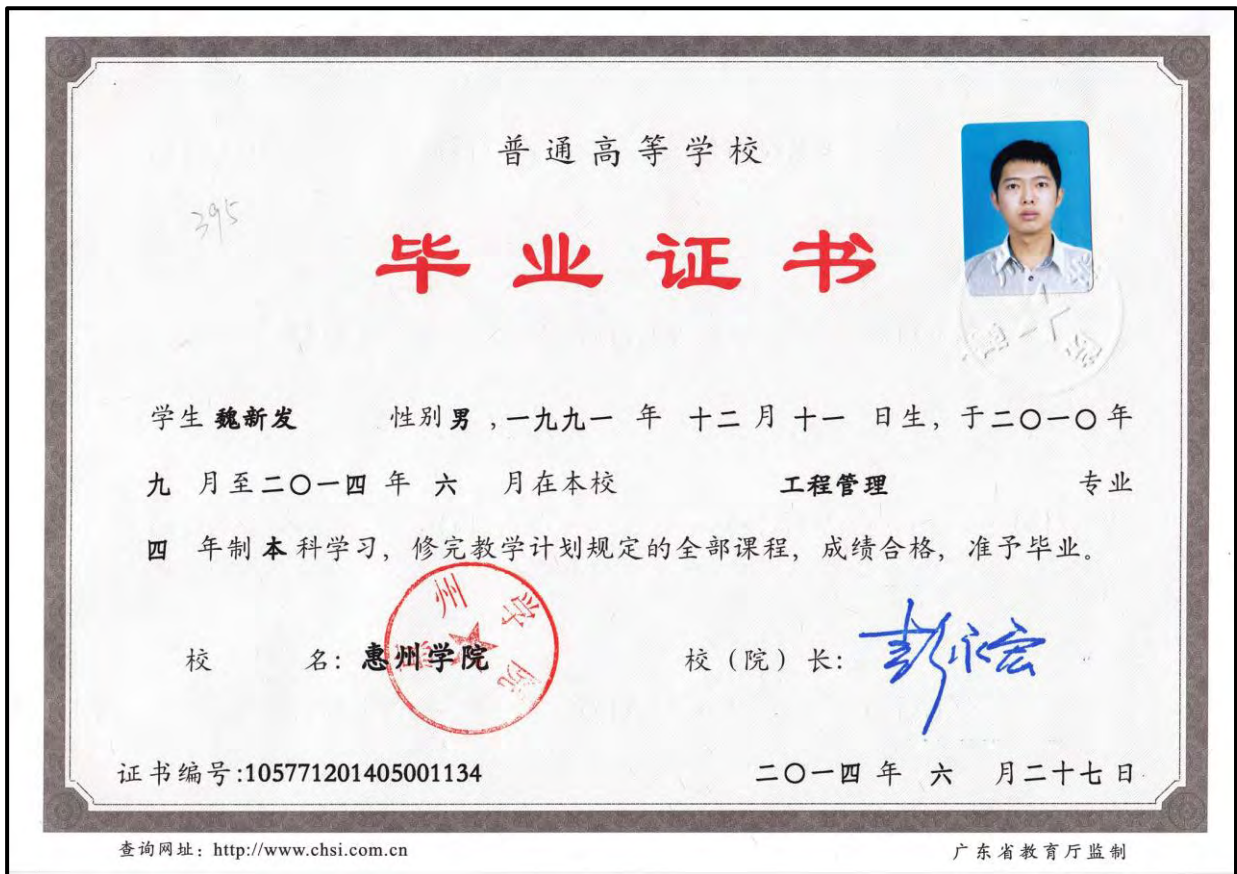 普通高等学校
395
毕业证书
学生 魏新发 性别 男 ,一九九一 年 十二 月 十一 日生, 于二〇一〇年
九 月至二〇一四 年 六 月在本校 工程管理 专业
四 年制 本 科学习, 修完教学计划规定的全部课程, 成绩合格, 准予毕业。
校 名: 惠州学院 校（院）长: 彭永宏
惠州学院
证书编号:105771201405001134 二〇一四 年 六 月二十七 日
查询网址: http://www.chsi.com.cn 广东省教育厅监制